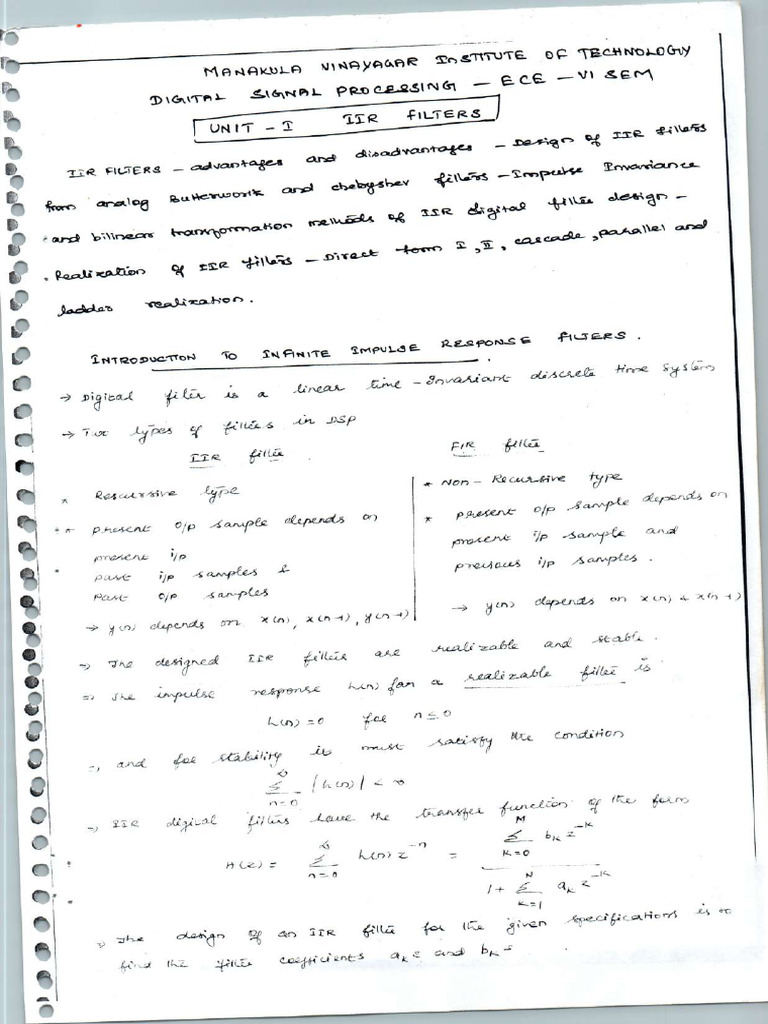 MANAKULA VINAYAGAR INSTITUTE OF TECHNOLOGY
DIGITAL SIGNAL PROCESSING – ECE – VI SEM
UNIT – I IIR FILTERS
IIR FILTERS – advantages and disadvantages – Design of IIR filters
from analog Butterwork and chebyshev filters – Impulse Invariance
and bilinear transformation methods of IIR digital filter design –
Realization of IIR filters – Direct form I, II, cascade, parallel and
ladder realization.
INTRODUCTION TO INFINITE IMPULSE RESPONSE FILTERS.
→ Digital filter is a linear time – Invariant discrete time system
→ Two types of filters in DSP
IIR filter
* Rescursive type
* present o/p sample depends on
present i/p
past i/p samples &
past o/p samples
→ y(n) depends on x(n), x(n-1), y(n-1)
FIR filter
* Non – Recursive type
* present o/p sample depends on
present i/p sample and
previous i/p samples.
→ y(n) depends on x(n) & x(n-1)
⇒ The designed IIR filters are realizable and stable.
⇒ The impulse response h(n) for a realizable filter is
h(n) = 0 for n ≤ 0
⇒ and for stability it must satisfy the condition
∞ ∑ n=0 |h(n)| < ∞
⇒ IIR digital filters have the transfer function of the form
H(z) = ∞ ∑ n=0 h(n) z^-n = M ∑ k=0 b_k z^-k / 1 + N ∑ k=1 a_k z^-k
⇒ The design of an IIR filter for the given specifications is to
find the filter coefficients a_k's and b_k's.